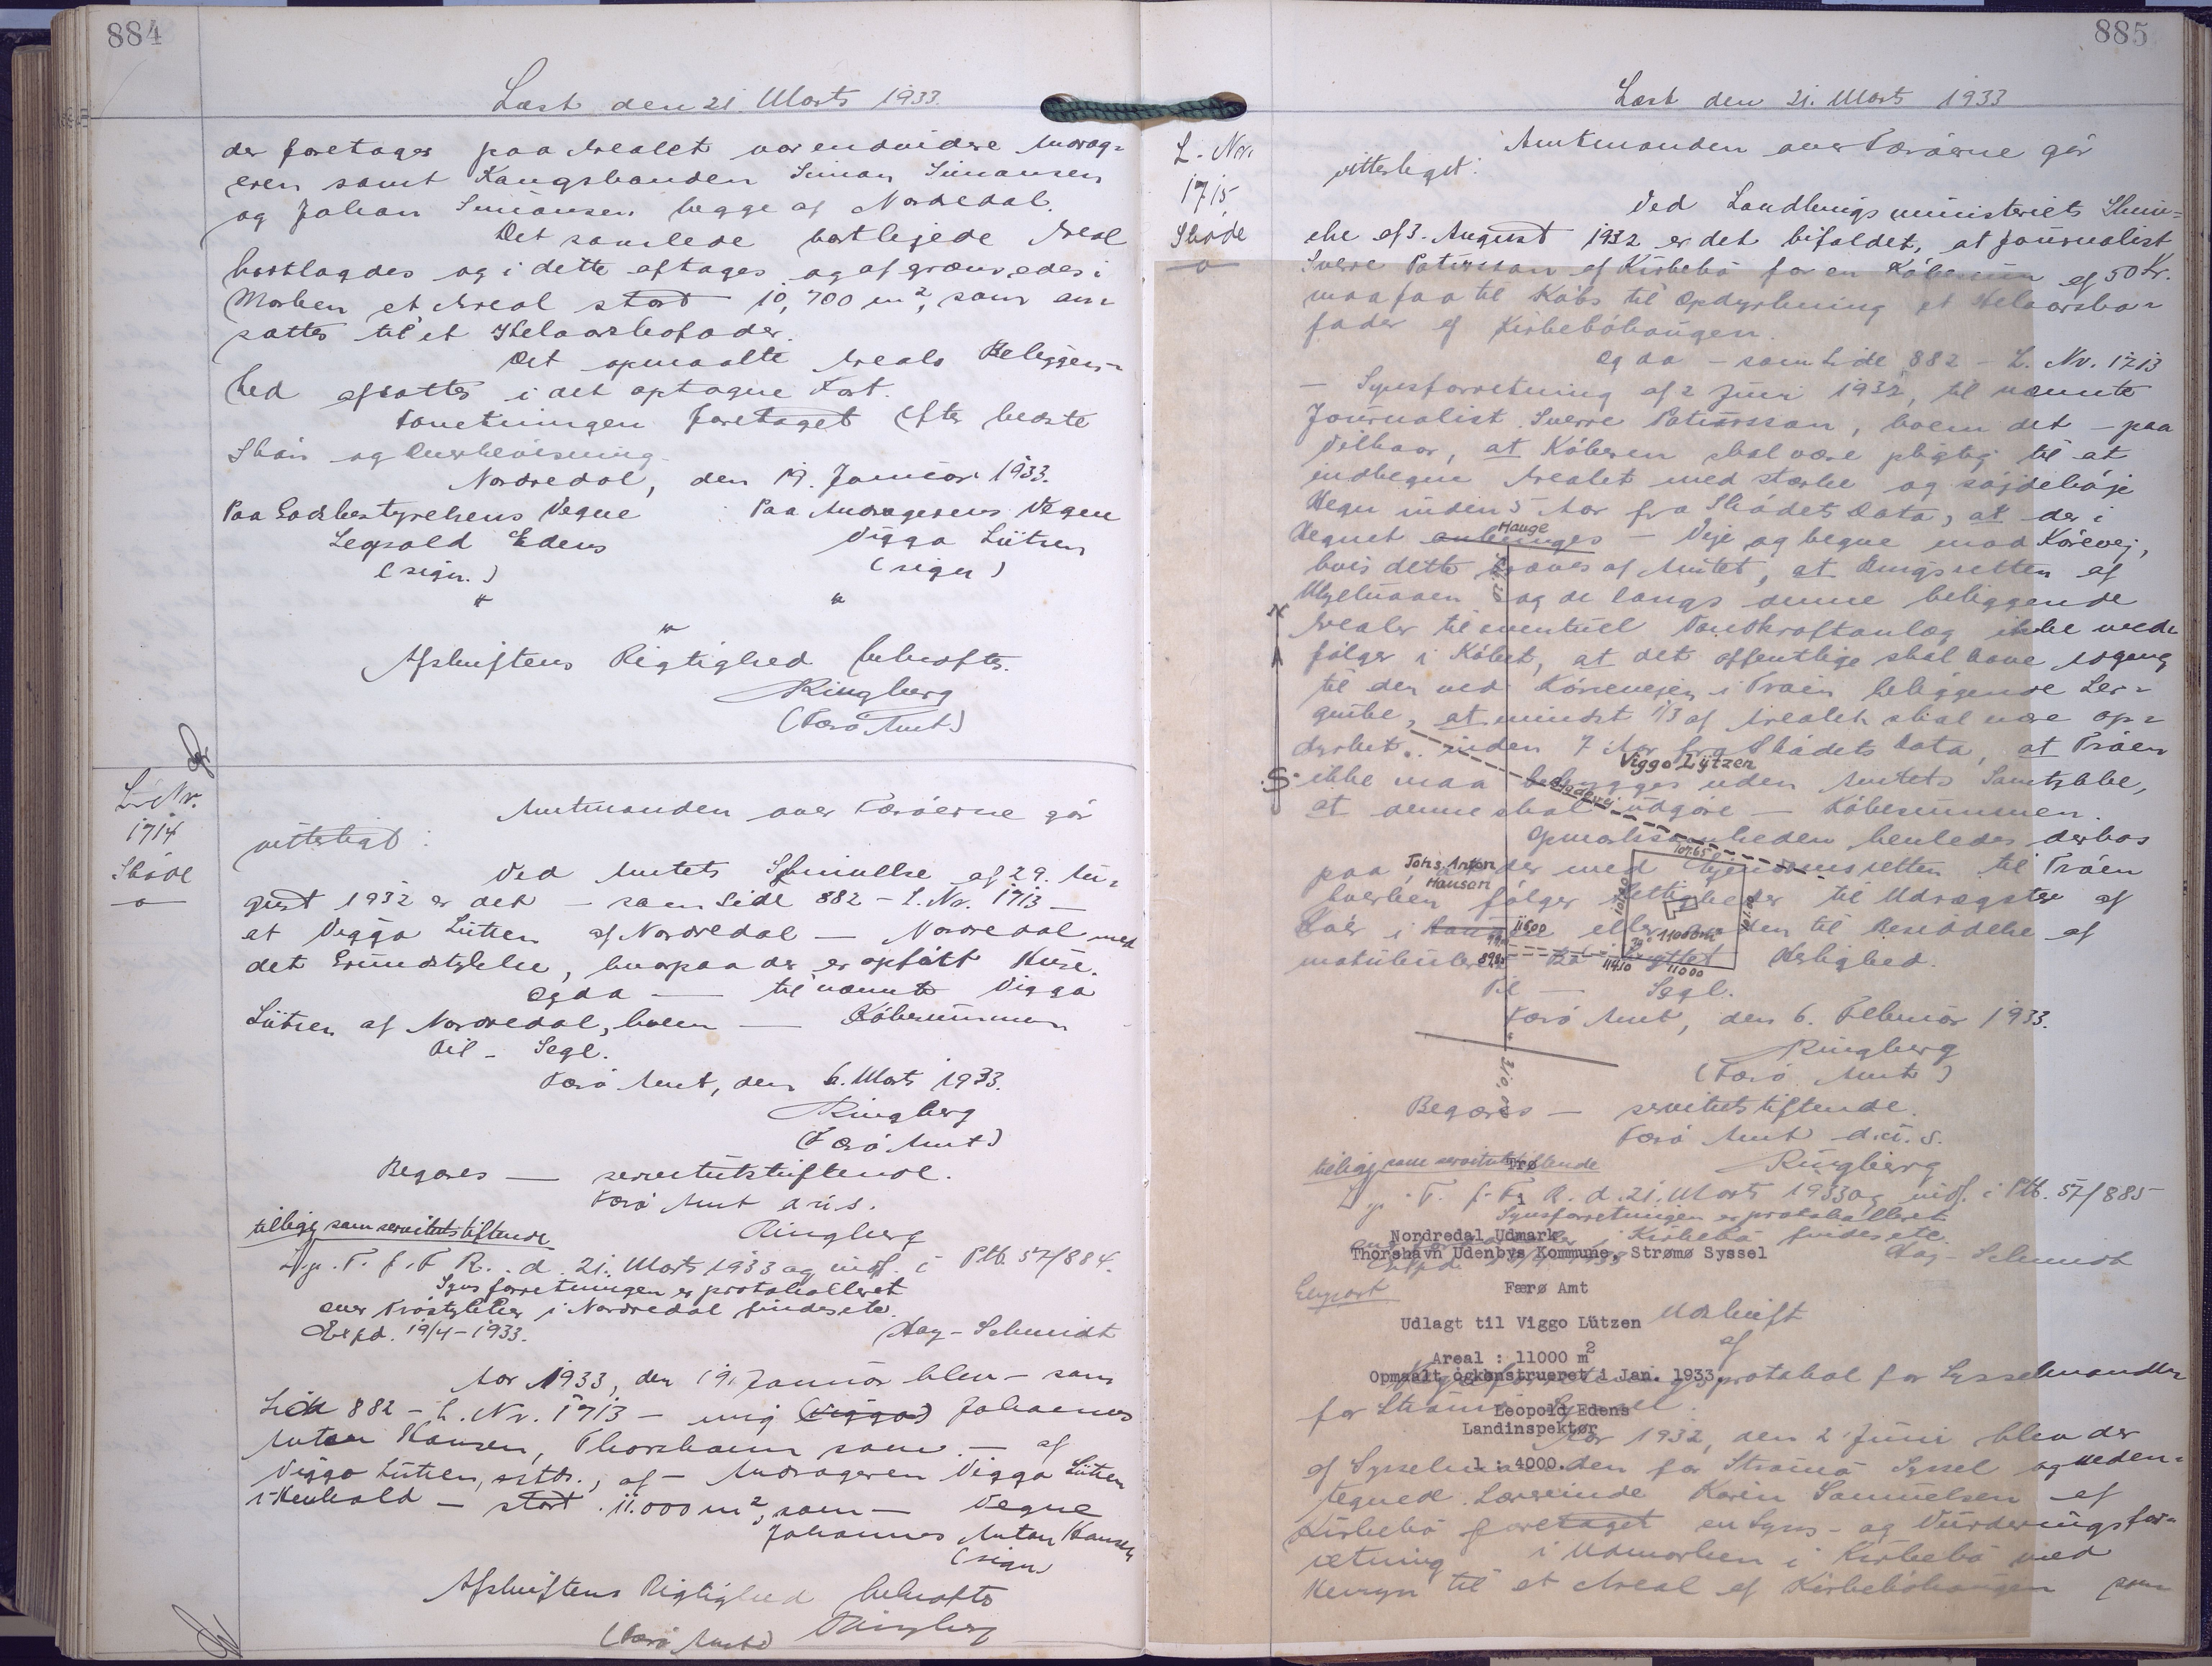 884
Læst den 21. Marts 1933.
der foretages paa Arealet var endvidere Andrag-
eren samt Kongsbonden Simon Simonsen
og Johan Simonsen begge af Nordredal.
Det samlede bortlejede Areal
besigtigedes og i dette aftages og afgrænsedes i
Marken et Areal stort 10,700 m², som an-
sattes til et Helaarskofoder.
Det opmaalte Areals Beliggen-
hed afsattes i det optagne Kort.
Forretningen foretaget efter bedste
Skøn og Overbevisning.
Nordredal, den 19. Januar 1933.
Paa Godsbestyrelsens Vegne Paa Andragerens Vegne
Leopold Edens Viggo Lützen
(sign.) (sign)
" "
"
Afskriftens Rigtighed bekræftes.
Ringberg
(Færø Amt)
L. Nr.
1714
Skøde
Amtmanden over Færøerne gør
vitterligt:
Ved Amtets Skrivelse af 29. Au-
gust 1932 er det – som Side 882 – L. Nr. 1713 –
at Viggo Lützen af Nordredal — Nordredal med
det Grundstykke, hvorpaa der er opført Huse.
Og da — til nævnte Viggo
Lützen af Nordredal, hvem — Købesummen
Til – Segl.
Færø Amt, den 6. Marts 1933.
Ringberg
(Færø Amt)
Begæres — servitutstiftende.
Færø Amt d.u.s.
Ringberg
tillige som servitutstiftende
L. p. T. f. F. R. d. 21. Marts 1933 og indf. i Ptk. 57/884.
Synsforretningen er protokolleret
over Trøstykker i Nordredal findes etc.
Expd. 19/4-1933. Aag-Schmidt
Aar 1933, den 19. Januar blev – som
Side 882 – L. Nr. 1713 – mig (Viggo) Johannes
Anton Hansen, Thorshavn som – af
Viggo Lützen, sstds., af – Andrageren Viggo Lützen
i Henhold – stort 11.000 m², som – Vegne
Johannes Anton Hansen
(sign)
Afskriftens Rigtighed bekræftes
(Færø Amt) Ringberg
885
Læst den 21. Marts 1933
L. Nr.
1715
Skøde
Amtmanden over Færøerne gør
vitterligt:
Ved Landbrugsministeriets Skriv-
else af 3. August 1932 er det bifaldet, at Journalist
Sverre Patursson af Kirkebø for en Købesum af 50 Kr.
maa faa til Købs til Opdyrkning et Helaarsko-
foder af Kirkebøhaugen.
Og da – som Side 882 – L. Nr. 1713
– Synsforretning af 2 Juni 1932, til nævnte
Journalist Sverre Patursson, hvem det – paa
Vilkaar, at Køberen skal være pligtig til at
indhegne Arealet med stærke og søjdehøje
Hegn inden 5 Aar fra Skødets Data, at der i
Hegnet anbringes – Veje og hegne mod Kørevej,
hvis dette kræves af Amtet, at Brugsretten af
og de langs denne beliggende
Arealer til eventuel Vandkraftanlæg ikke med-
følger i Købet, at det offentlige skal have Adgang
til den ved Kørevejen i Trøen beliggende Ler-
grube, at mindst 1/3 af Arealet skal være op-
dyrket inden 7 Aar fra Skødets Data, at Trøen
ikke maa bebygges uden Amtets Samtykke,
at denne skal udgøre – Købesummen.
Opmærksomheden henledes derhos
paa, at der med Ejendomsretten til Trøen
hverken følger Rettigheder til Udrægster af
Køer i Haugen eller til Besiddelse af
Herlighed.
Til — Segl.
Færø Amt, den 6. Februar 1933.
Ringberg
(Færø Amt)
Begæres — servitutstiftende.
Færø Amt d.u.s.
Ringberg
tillige som servitutstiftende
L. p. T. f. F. R. d. 21. Marts 1933 og indf. i Ptk. 57/885
Synsforretningen er protokolleret
i Kirkebø findes etc.
Aag-Schmidt
Genpart
Udskrift
af
protokol for Sysselmanden
for Strømø Syssel.
Aar 1932, den 2 Juni blev der
af Sysselmanden for Strømø Syssel og neden-
tegnede Lærerinde Karin Samuelsen af
Kirkebø foretaget en Syns- og Vurderingsfor-
retning i Udmarken i Kirkebø med
Hensyn til et Areal af Kirkebøhaugen som
Hauge
N
S
Viggo Lützen
Johs. Anton
Hansen
107.65
101.00
11800
11000m²
11410
11000
Trø
i
Nordredal Udmark
Thorshavn Udenbys Kommune, Strømø Syssel
Færø Amt
Udlagt til Viggo Lützen
Areal : 11000 m²
Opmaalt og konstrueret i Jan. 1933.
Leopold Edens
Landinspektør
1 : 4000.